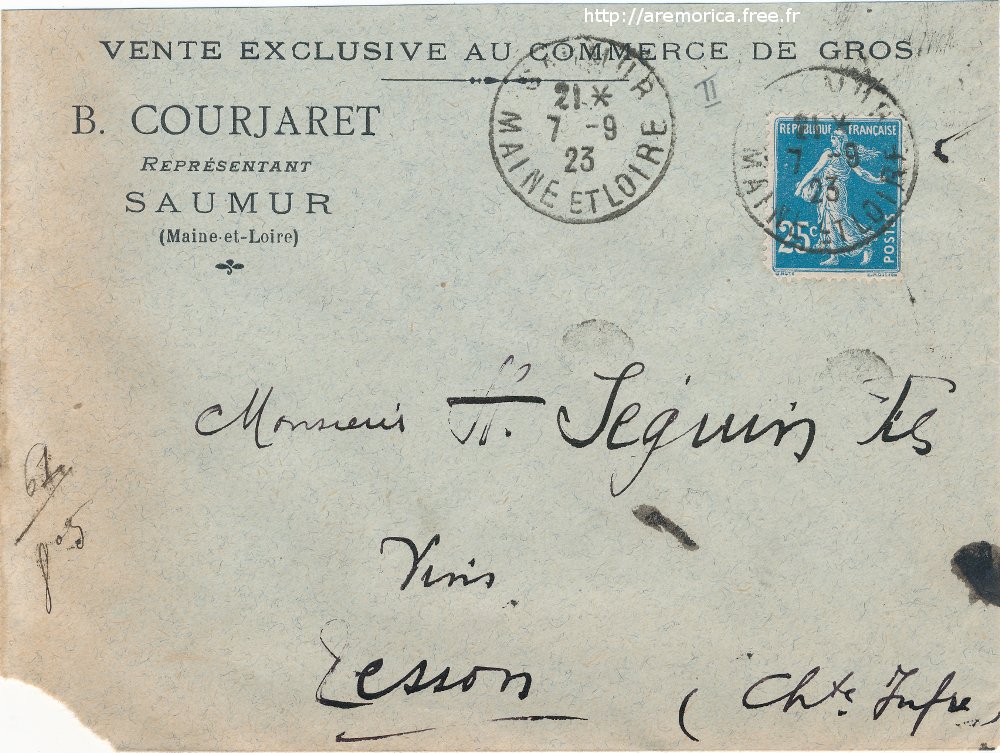 http://aremorica.free.fr
VENTE EXCLUSIVE AU COMMERCE DE GROS
B. COURJARET
REPRÉSENTANT
SAUMUR
(Maine-et-Loire)
SAUMUR
21*
7 -9
23
MAINE ET LOIRE
II
REPUBLIQUE FRANÇAISE
25c
POSTES
SAUMUR
21 *
7 -9
23
MAINE ET LOIRE
Monsieur H. Seguin
Vins
Tesson (Chte Infre